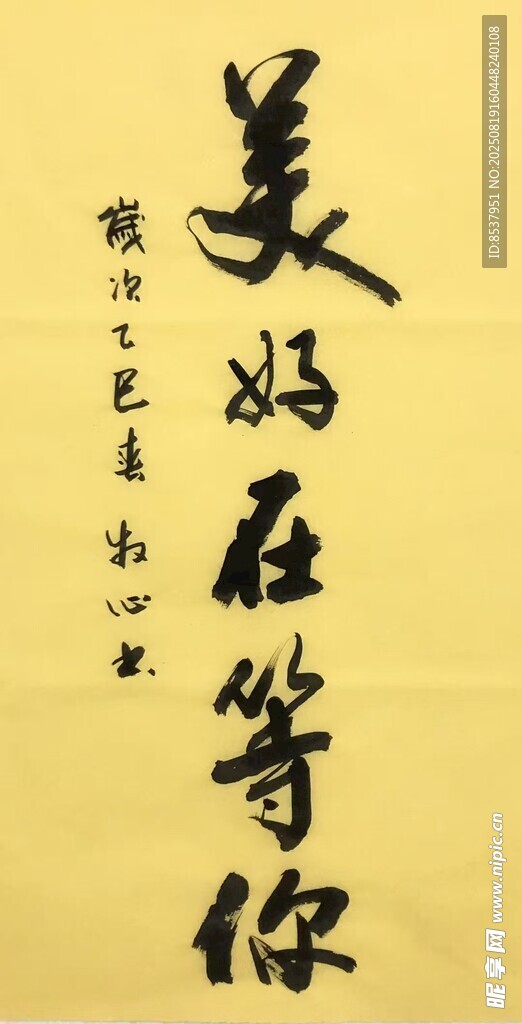 美好在等你
歲次乙巳春 牧心书
ID:8537951 NO:20250819160448240108
昵享网 www.nipic.cn